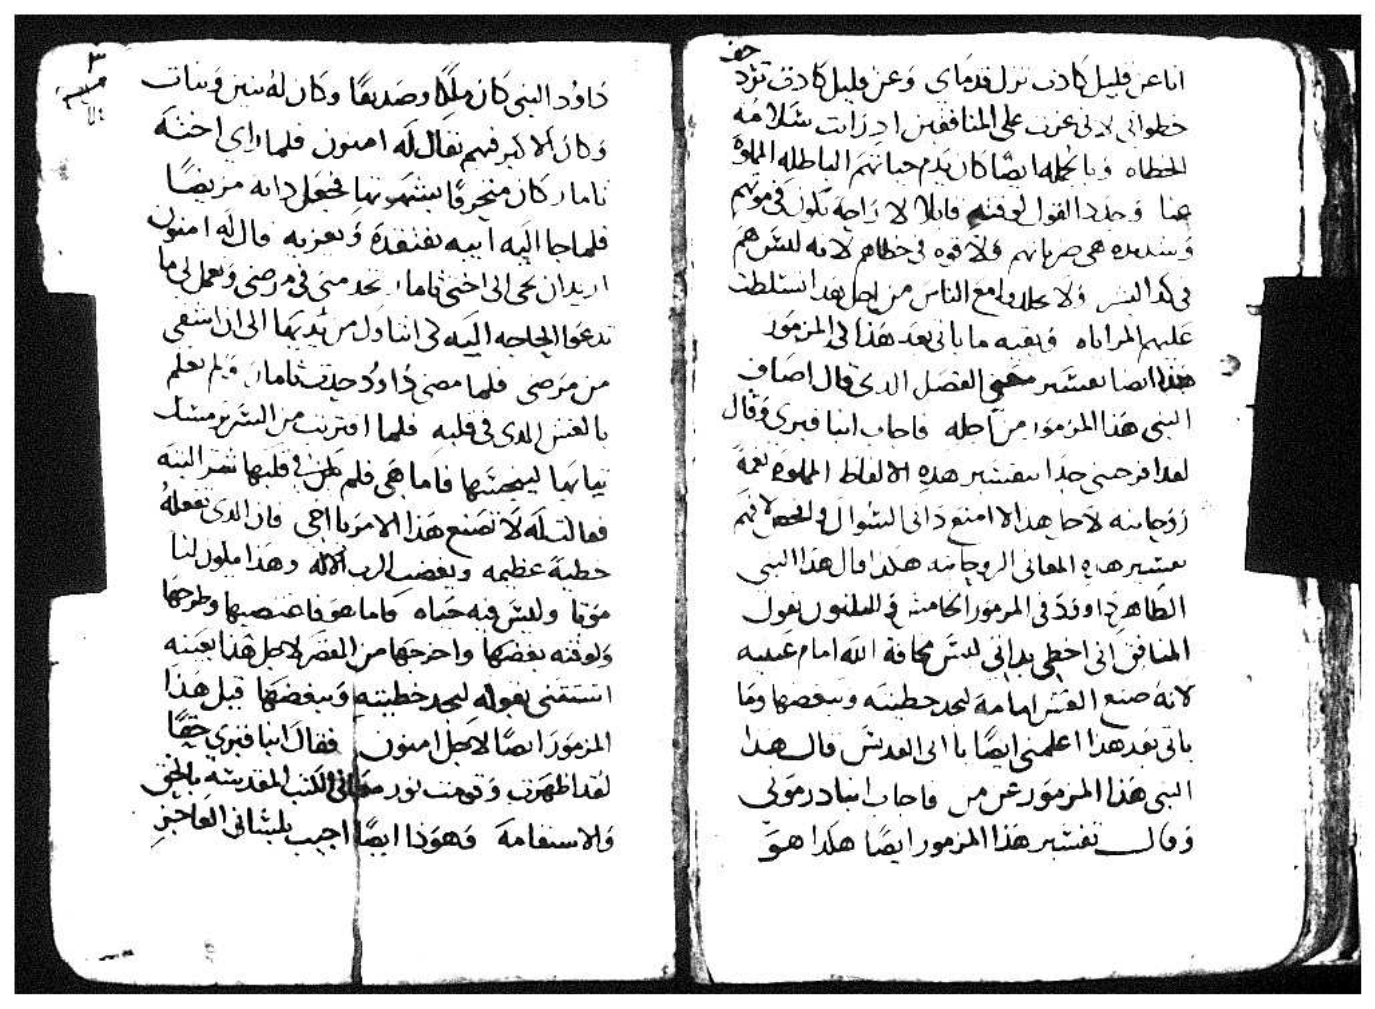 حف
انا عن قليل كادت تزل قدماى وعن قليل كادت تزد
خطواتى لانى غرت على المنافقين اد رايت سلامه
الخطاه وبالجمله ايضًا كان يدم حياتهم الباطله المملوه
عنا وجدد القول لوقته قايلا لا راحة تكون فى موتهم
وشديده هى ضرباتهم ولا قوه فى خطاهم لانه ليس هم
فى كد البشر ولا يجلدوا مع الناس من اجل هدا تسلطت
عليهم المراياه وبقيه ما ياتى بعد هذا فى المزمور
هذا ايضا تفسير معنى الفصل الدى قال اصاف
النبى هذا المزمور من اجله فاجاب انبا فيرى وقال
لقد افرحنى جدا تفسير هذه الالفاظ المملوه نعمة
روحانيه لاجل هدا لا امنع داتى السوال والفحص لافهم
تفسير هده المعانى الروحانيه هكدا قال هدا النبى
الطاهر داوود فى المزمور الخامس والتلتون يقول
المنافق انى اخطى بداتى ليس مخافة الله امام عينيه
لانه صنع الغش امامه ليجد خطيته ويبغضها وما
ياتى بعد هدا اعلمنى ايضًا يا ابى القديس قال هدا
النبى هذا المزمور عن من فاجاب انبا درموتى
وقال تفسير هذا المزمور ايضًا هكدا هو
٣
داوُد النبى كان ملكًا وصديقًا وكان له بنين وبنات
وكان الاكبر فيهم يقال له امنون فلما راى اخته
تامار كان منحرفًا يشتهيها فجعل داته مريضًا
فلما جا اليه ابيه يفتقده ويعزيه قال له امنون
اريد ان تجى الى اختى تامار تخدمنى فى مرضى وتعمل لى ما
تدعوا الحاجه اليه لى اتناول من يديها الى ان اشفى
من مرضى فلما مضى داوُد جدبت تامار ولم تعلم
بالغش الدى فى قلبه فلما اقتربت من السرير مسك
ثيابها ليضجعها فاما هى فلم يكن فى قلبها شر البته
فقالت له لا تصنع هذا الامر يا اخى فان الدى تفعلهُ
خطية عظيمه ويغضب الرب الاله وهذا مايكون لنا
موتا وليس فيه حياه فاما هو فاغتصبها وطرحها
ولوقته بغضها واخرجها من القصر لاجل هذا بعينه
استقنى بقوله ليجد خطيته ويبغضها قيل هذا
المزمور ايضًا لاجل امنون فقال انبا فيرى حقًا
لقد اظهرت وقومت نور معانى الكتب المقدسه بالحق
والاستقامة وهوذا ايضًا اجيب بلسانى العاجز